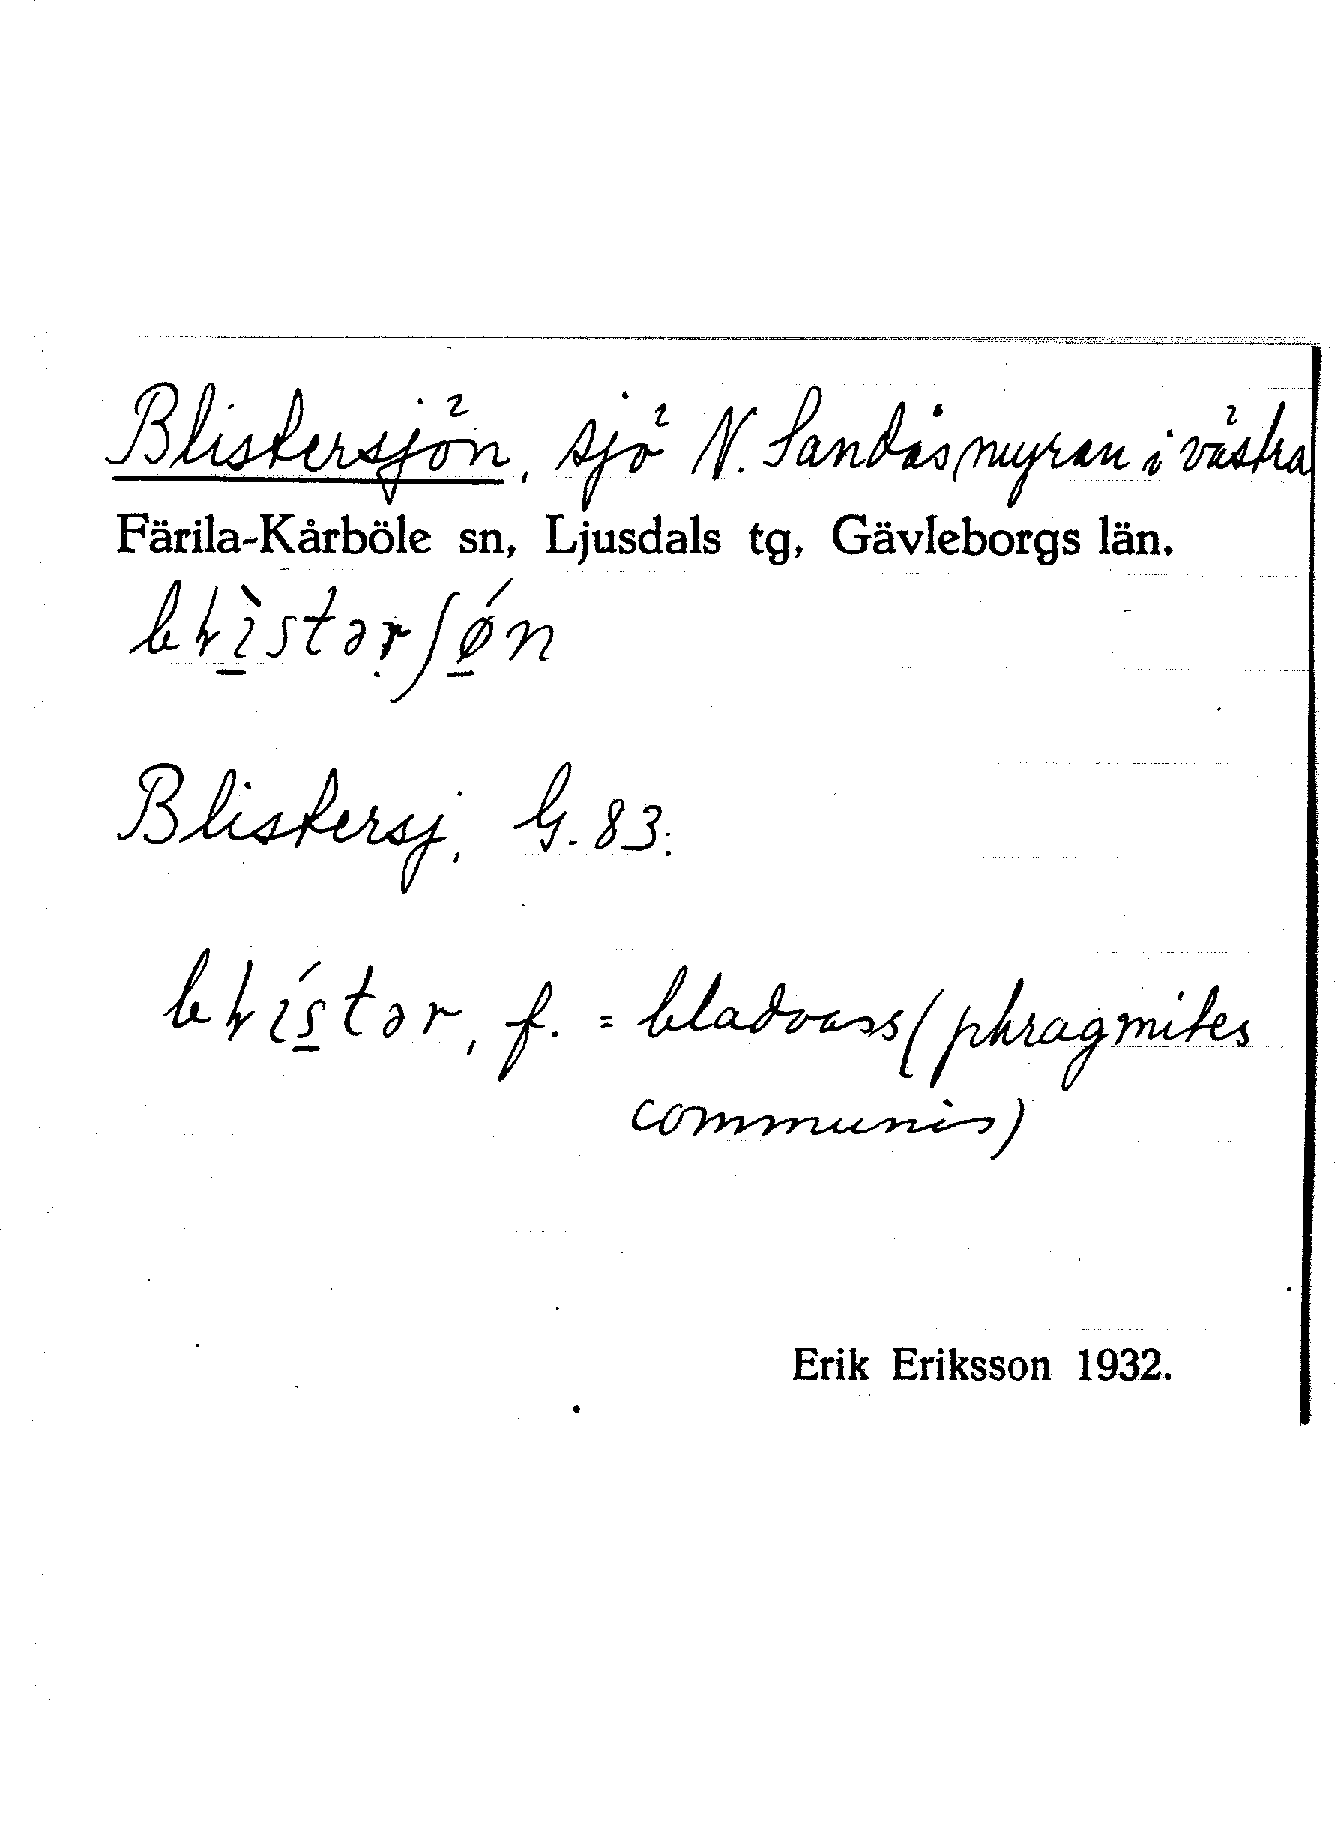 Blistersjön, sjö N. Sandåsmyran i västra
Färila-Kårböle sn, Ljusdals tg, Gävleborgs län.
błìstərʃǿn
Blistersj. G. 83.
błístər, f. = bladvass (phragmites
communis)
Erik Eriksson 1932.